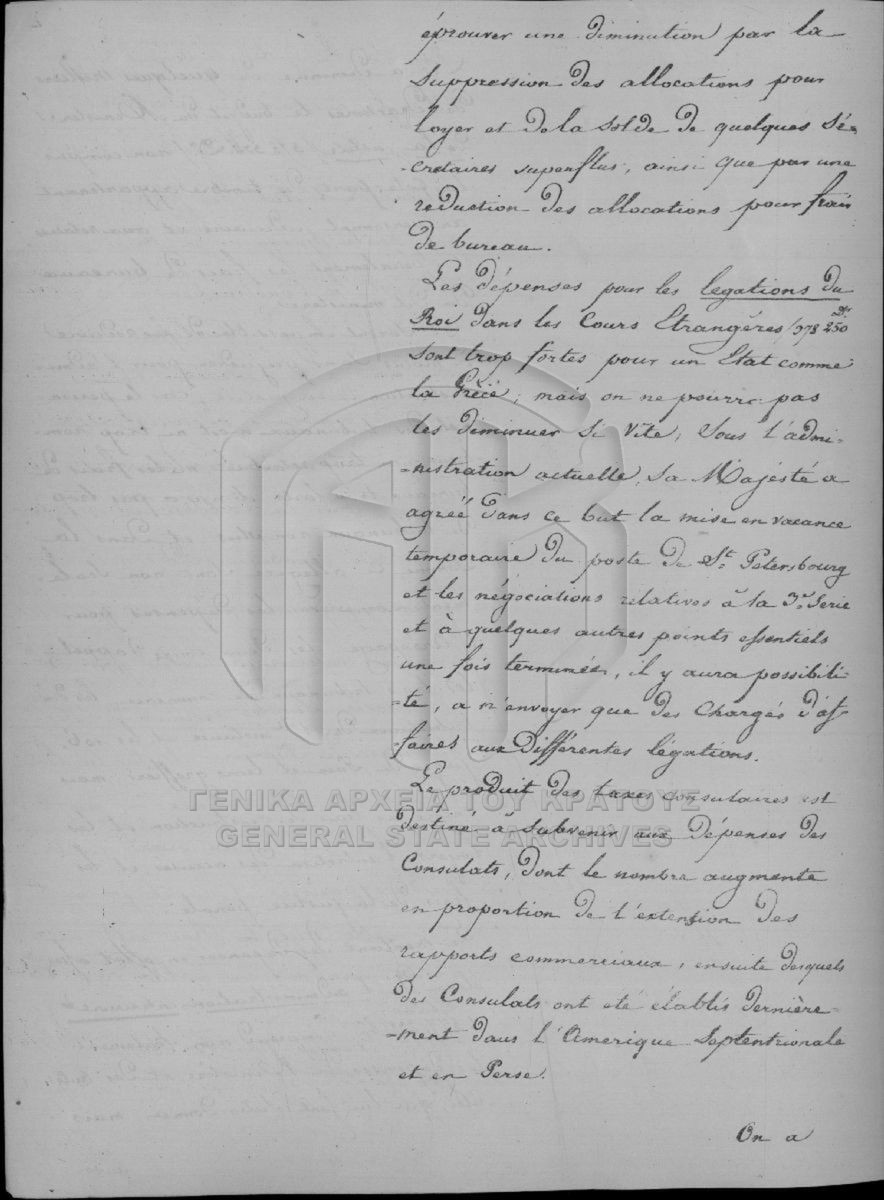 éprouver une diminution par la
suppression des allocations pour
loyer et de la solde de quelques sé-
-crétaires superflus, ainsi que par une
réduction des allocations pour frais
de bureau.
Les dépenses pour les légations du
Roi dans les Cours Etrangères /378 250 Dr
sont trop fortes pour un Etat comme
la Grèce; mais on ne pourra pas
les diminuer si vite; Sous l'admi-
-nistration actuelle, Sa Majésté a
agréé dans ce but la mise en vacance
temporaire du poste de St. Petersbourg
et les négociations relatives à la 3e Serie
et à quelques autres points essentiels
une fois terminées, il y aura possibili-
-té, a n'envoyer que des Chargés d'af-
-faires aux différentes légations.
Le produit des taxes consulaires est
destiné à subvenir aux dépenses des
Consulats, dont le nombre augmente
en proportion de l'extension des
rapports commerciaux, ensuite desquels
des Consulats ont eté établis dernière-
-ment dans l'Amerique Septentrionale
et en Perse.
On a
ΓΕΝΙΚΑ ΑΡΧΕΙΑ ΤΟΥ ΚΡΑΤΟΥΣ
GENERAL STATE ARCHIVES